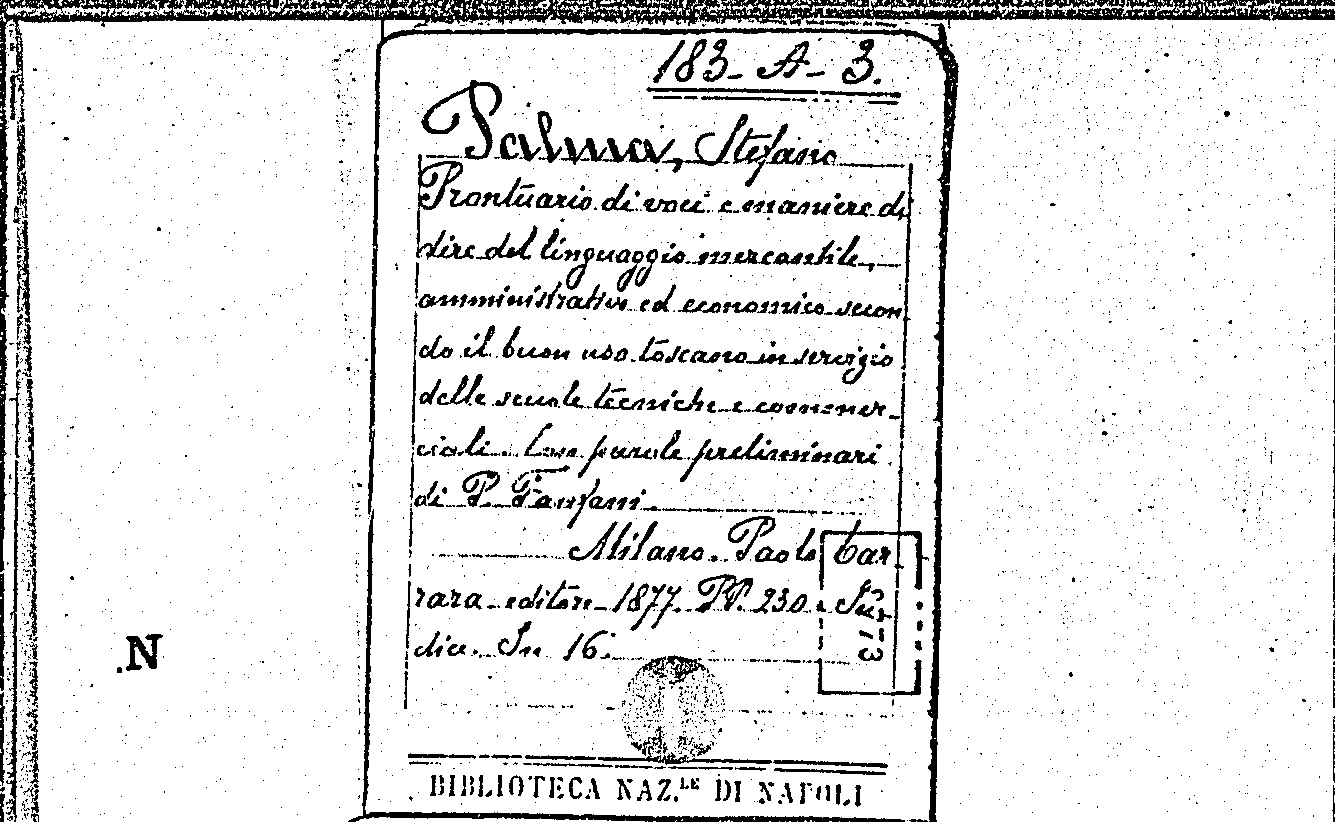 183-A-3.
Palma, Stefano
Prontuario di voci e maniere di
dire del linguaggio mercantile,
amministrativo ed economico secon
do il buon uso toscano in servizio
delle scuole tecniche e commer-
ciali. Con parole preliminari
di P. Fanfani.
Milano. Paolo Car-
rara editore 1877. PP. 230. In-
dice. In 16.
N
BIBLIOTECA NAZ.LE DI NAPOLI